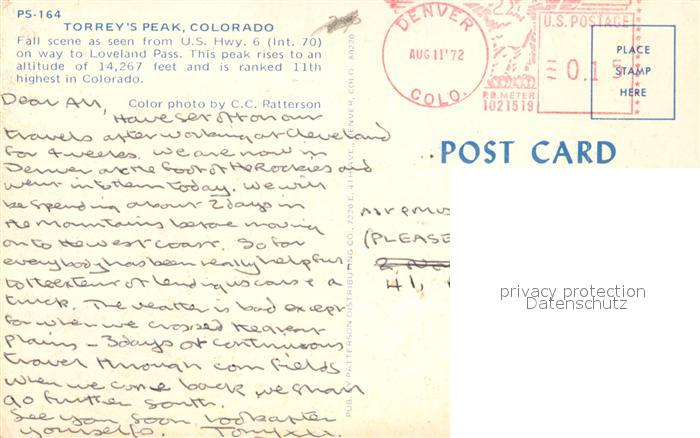 PS-164
TORREY'S PEAK, COLORADO
Fall scene as seen from U.S. Hwy. 6 (Int. 70)
on way to Loveland Pass. This peak rises to an
altitude of 14,267 feet and is ranked 11th
highest in Colorado.
Color photo by C.C. Patterson
Dear All,
Have set off on our
travels after working at Cleveland
for 4 weeks. We are now in
Denver at the foot of the Rockies and
went into them today. We will
be spending about 2 days in
the Mountains before moving
on to the west coast. So far
everybody has been really helpful
to the extent of lending us cars & a
truck. The weather is bad except
for when we crossed the great
plains - 3 days of continuous
travel through corn fields
when we come back we shall
go further south.
See you soon look after
yourselfs. Tony
PUB. BY PATTERSON DISTRIBUTING CO., 7220 E. 4TH AVE., DENVER, COLO. 80220
DENVER
AUG 11 '72
COLO.
U.S. POSTAGE
0.15
P.B. METER
1021519
PLACE
STAMP
HERE
POST CARD
(PLEASE
41,
privacy protection
Datenschutz